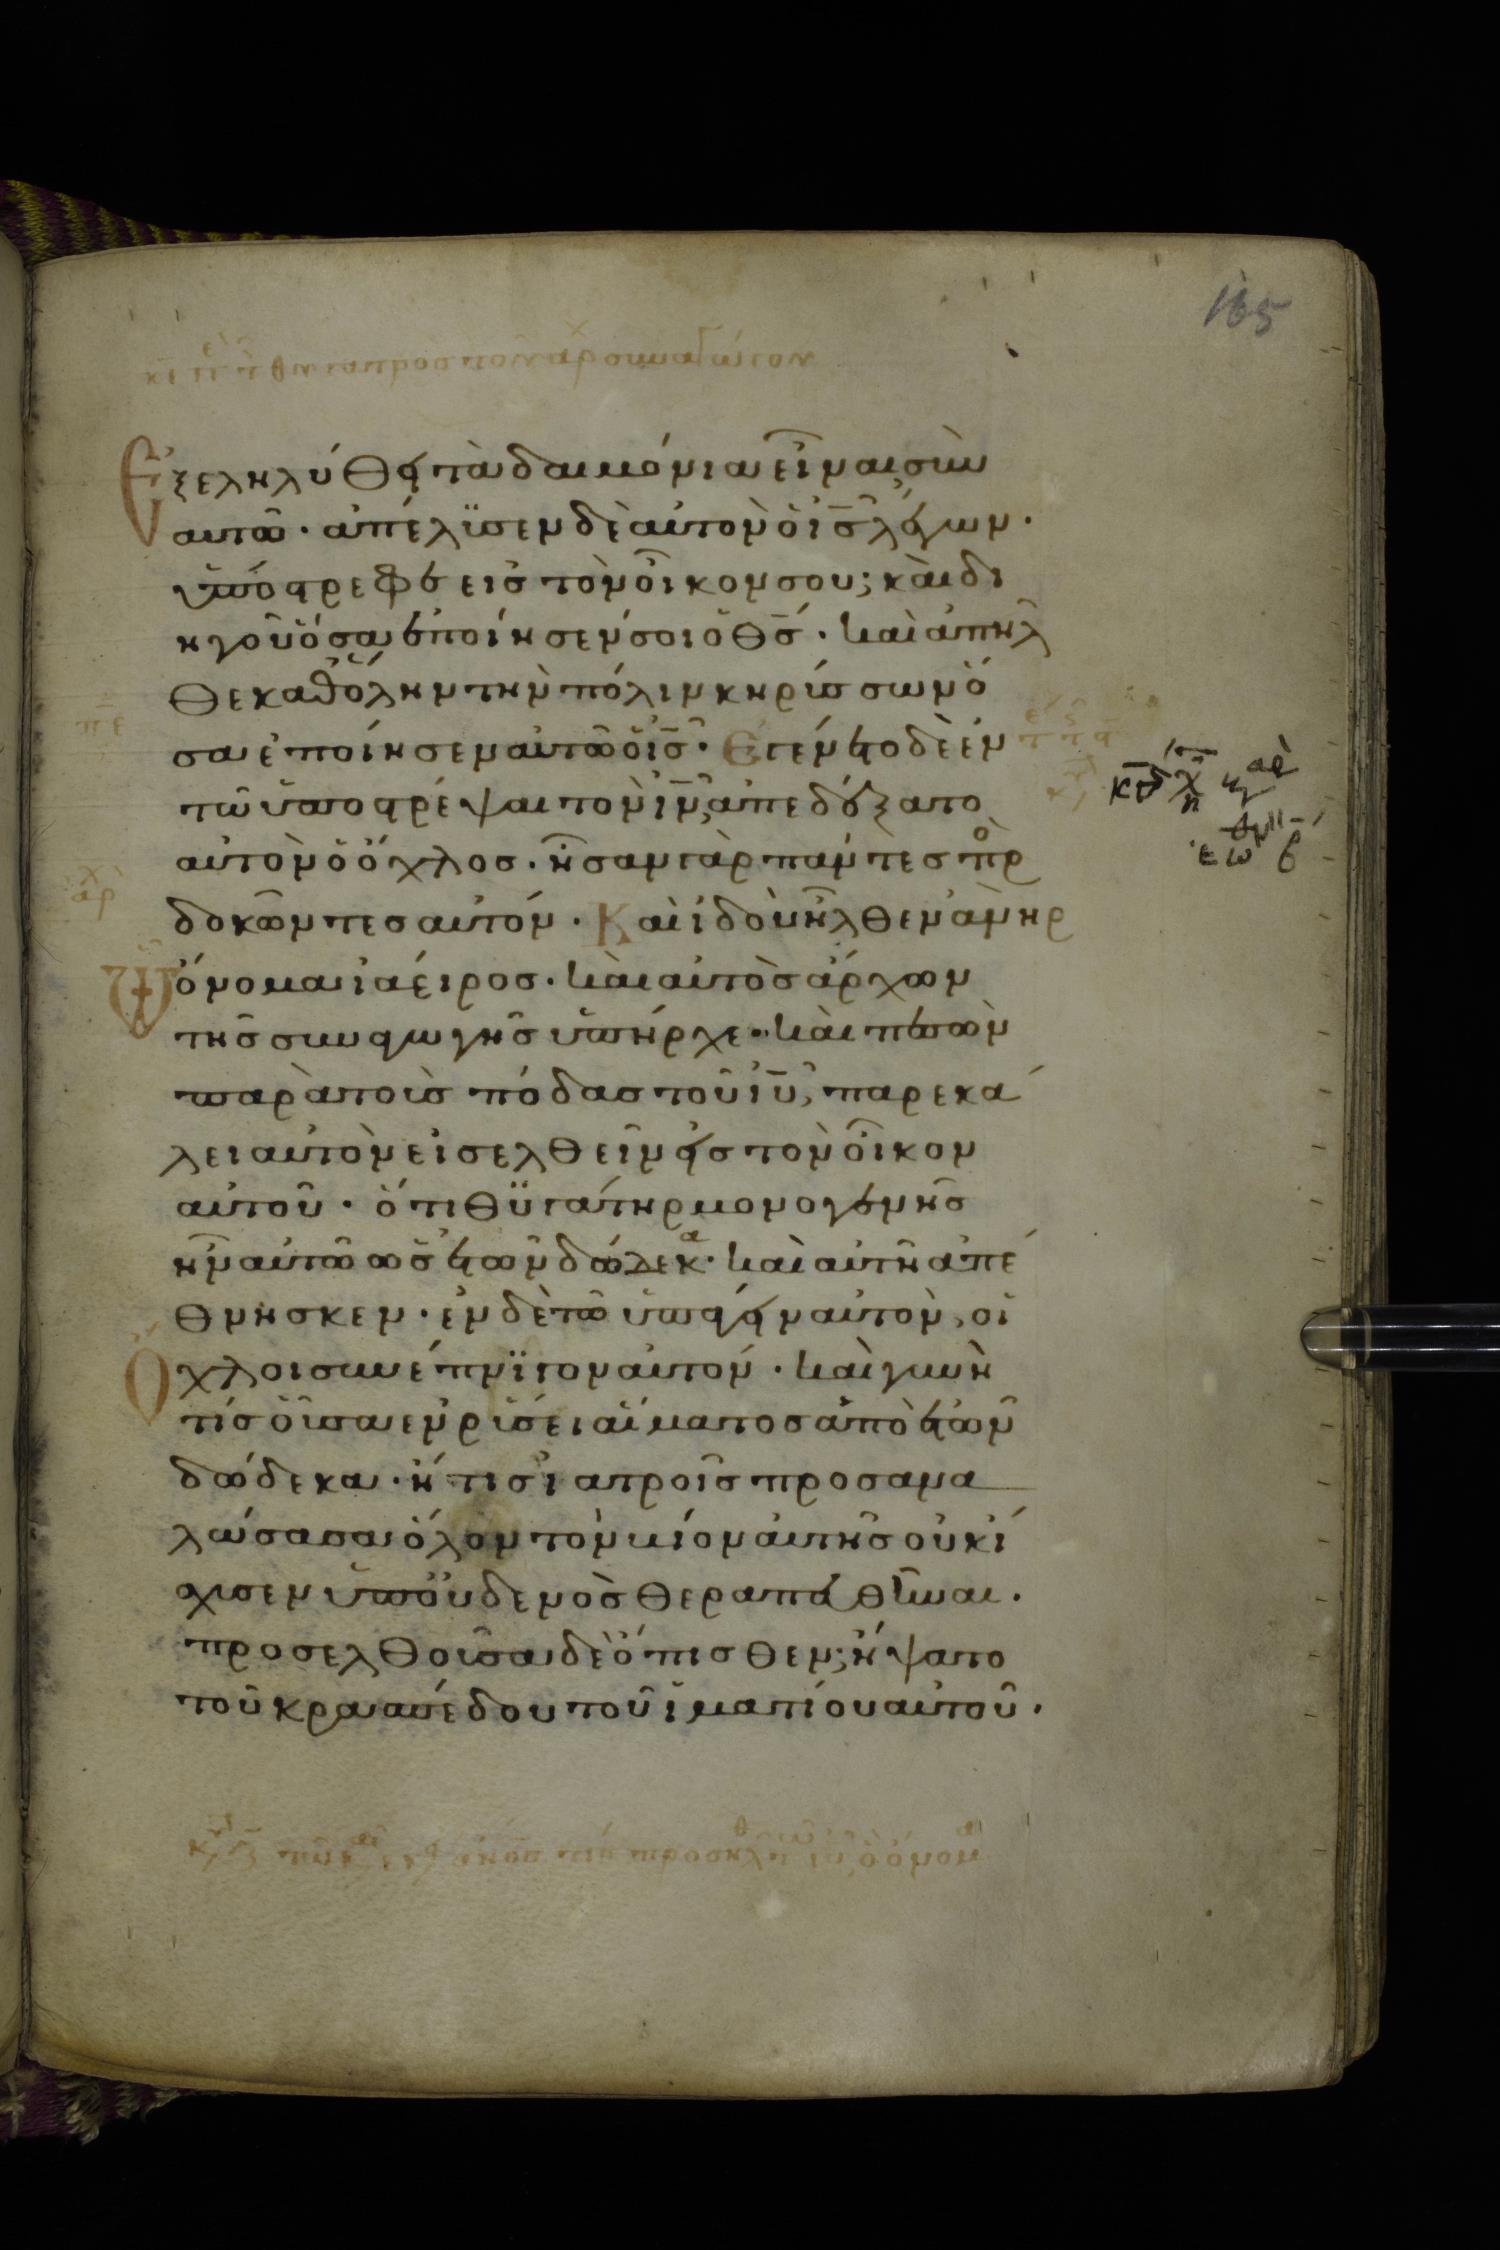 165
Ἐξεληλύθει τὰ δαιμόνια εἶναι σὺν
αυτῶ· ἀπέλϋσεν δὲ αὐτὸν ὁ ἰ̅ς̅ λέγων·
ὑπόστρεφε εἰς τὸν οἶκον σου; καὶ δι
ηγοῦ ὅσα ἐποίησέν σοι ὁ θ̅ς̅· καὶ ἀπῆλ
θε καθ' ὅλην τὴν πόλιν κηρύσσων ὅ
σα ἐποίησεν αὐτῶ ὁ ἰ̅ς̅· Ἐγένετο δὲ ἐν
τῶ ὑποστρέψαι τὸν ἰ̅ν̅, ἀπεδέξατο
αὐτὸν ὁ ὄχλος· ἦσαν γὰρ πάντες προ
δοκῶντες αὐτόν· Καὶ ἰδοὺ ἦλθεν ἀνὴρ
Ὧ ὄνομα ϊάειρος· καὶ αὐτὸς ἄρχων
τῆς συναγωγῆς ὑπῆρχε· καὶ πεσὼν
παρὰ τοὺς πόδας τοῦ ἰ̅υ̅, παρεκά
λει αὐτὸν εἰσελθεῖν εἰς τὸν οἶκον
αὐτοῦ· ὅτι θϋγάτηρ μονογενὴς
ἦν αὐτῶ ὡς ἐτῶν δώδεκα· καὶ αὐτὴ ἀπέ
θνησκεν· ἐν δὲ τῶ ὑπάγειν αὐτὸν, οἱ
Ὄχλοι συνέπνϊγον αὐτόν· καὶ γυνὴ
τίς οὖσα ἐν ρύσει αἵματος ἀπὸ ἐτῶν
δώδεκα· ἥτις ἰατροῖς προσανα
λώσασα ὅλον τὸν βίον αὐτῆς οὐκ ί
σχυσεν ὑπ' οὐδενὸς θεραπευθῆναι·
προσελθοῦσα δὲ ὄπισθεν; ἥψατο
τοῦ κρασπέδου τοῦ ἱματίου αὐτοῦ·